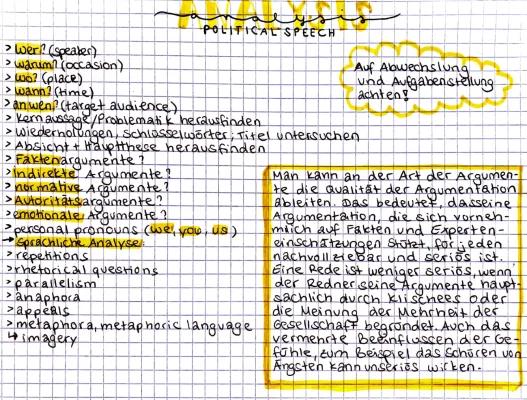 ANALYSIS
analysis
POLITICAL SPEECH
> wer? (speaker)
> warum? (occasion)
> wo? (place)
> wann? (time)
> an wen? (target audience)
> Kernaussage/Problematik herausfinden
> Wiederholungen, Schlüsselwörter, Titel untersuchen
> Absicht + Hauptthese herausfinden
> Faktenargumente?
> Indirekte Argumente?
> normative Argumente?
> Autoritätsargumente?
> emotionale Argumente?
> personal pronouns (we, you, us)
→ Sprachliche Analyse:
> repetitions
> rhetorical questions
> parallelism
> anaphora
> appeals
> metaphora, metaphoric language
↳ imagery
Auf Abwechslung
und Aufgabenstellung
achten!
Man kann an der Art der Argumen-
te die Qualität der Argumentation
ableiten. Das bedeutet, dass eine
Argumentation, die sich vorneh-
mlich auf Fakten und Experten-
einschätzungen stützt, für jeden
nachvollziebar und seriös ist.
Eine Rede ist weniger seriös, wenn
der Redner seine Argumente haupt-
sächlich durch Klischees oder
die Meinung der Mehrheit der
Gesellschaft begründet. Auch das
vermehrte Beeinflussen der Ge-
fühle, zum Beispiel das Schüren von
Ängsten kann unseriös wirken.